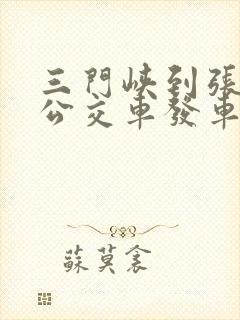 三門峽到張
公交車發車
蘇莫衾